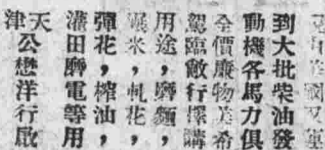 國又運
到大批柴油發
動機各馬力俱
全價廉物美希
駕臨敝行擇購
用途，磨麵，
碾米，軋花，
彈花，榨油，
灌田磨電等用
天津公懋洋行啟